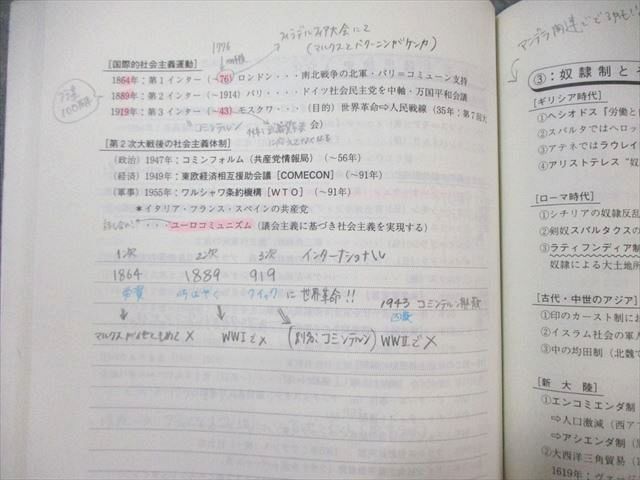 フィラデルフィア大会にて
(マルクスとバクーニンがケンカ)
1876
[国際的社会主義運動]
1864年：第1インター（~76）ロンドン・・・南北戦争の北軍・パリ＝コミューン支持
1889年：第2インター（~1914）パリ・・・ドイツ社会民主党を中軸・万国平和会議
1919年：第3インター（~43）モスクワ・・・（目的）世界革命⇨人民戦線（35年：第7回大
会）
コミンテルン
[第2次大戦後の社会主義体制]
（政治）1947年：コミンフォルム（共産党情報局）（~56年）
（経済）1949年：東欧経済相互援助会議［COMECON］（~91年）
（軍事）1955年：ワルシャワ条約機構［WTO］（~91年）
＊イタリア・フランス・スペインの共産党
・・・ユーロコミュニズム（議会主義に基づき社会主義を実現する）
1次 2次 3次 インターナショナル
1864 1889 919
に世界革命!!
1943 コミンテルン解散
WWIで× (別名:コミンテルン) WWⅡで×
③：奴隷制とそ
[ギリシア時代]
①ヘシオドス『労働と
②スパルタではヘロッ
③アテネではラウレイ
④アリストテレス“奴
[ローマ時代]
①シチリアの奴隷反乱
②剣奴スパルタクスの
③ラティフンディア制
奴隷による大土地所
[古代・中世のアジア]
①印のカースト制にお
②イスラム社会の軍人
③中の均田制（北魏で
[新 大 陸]
①エンコミエンダ制（
⇨人口激減（西アフ
⇨アシエンダ制（
②大西洋三角貿易（1
1619年：ヴァージ